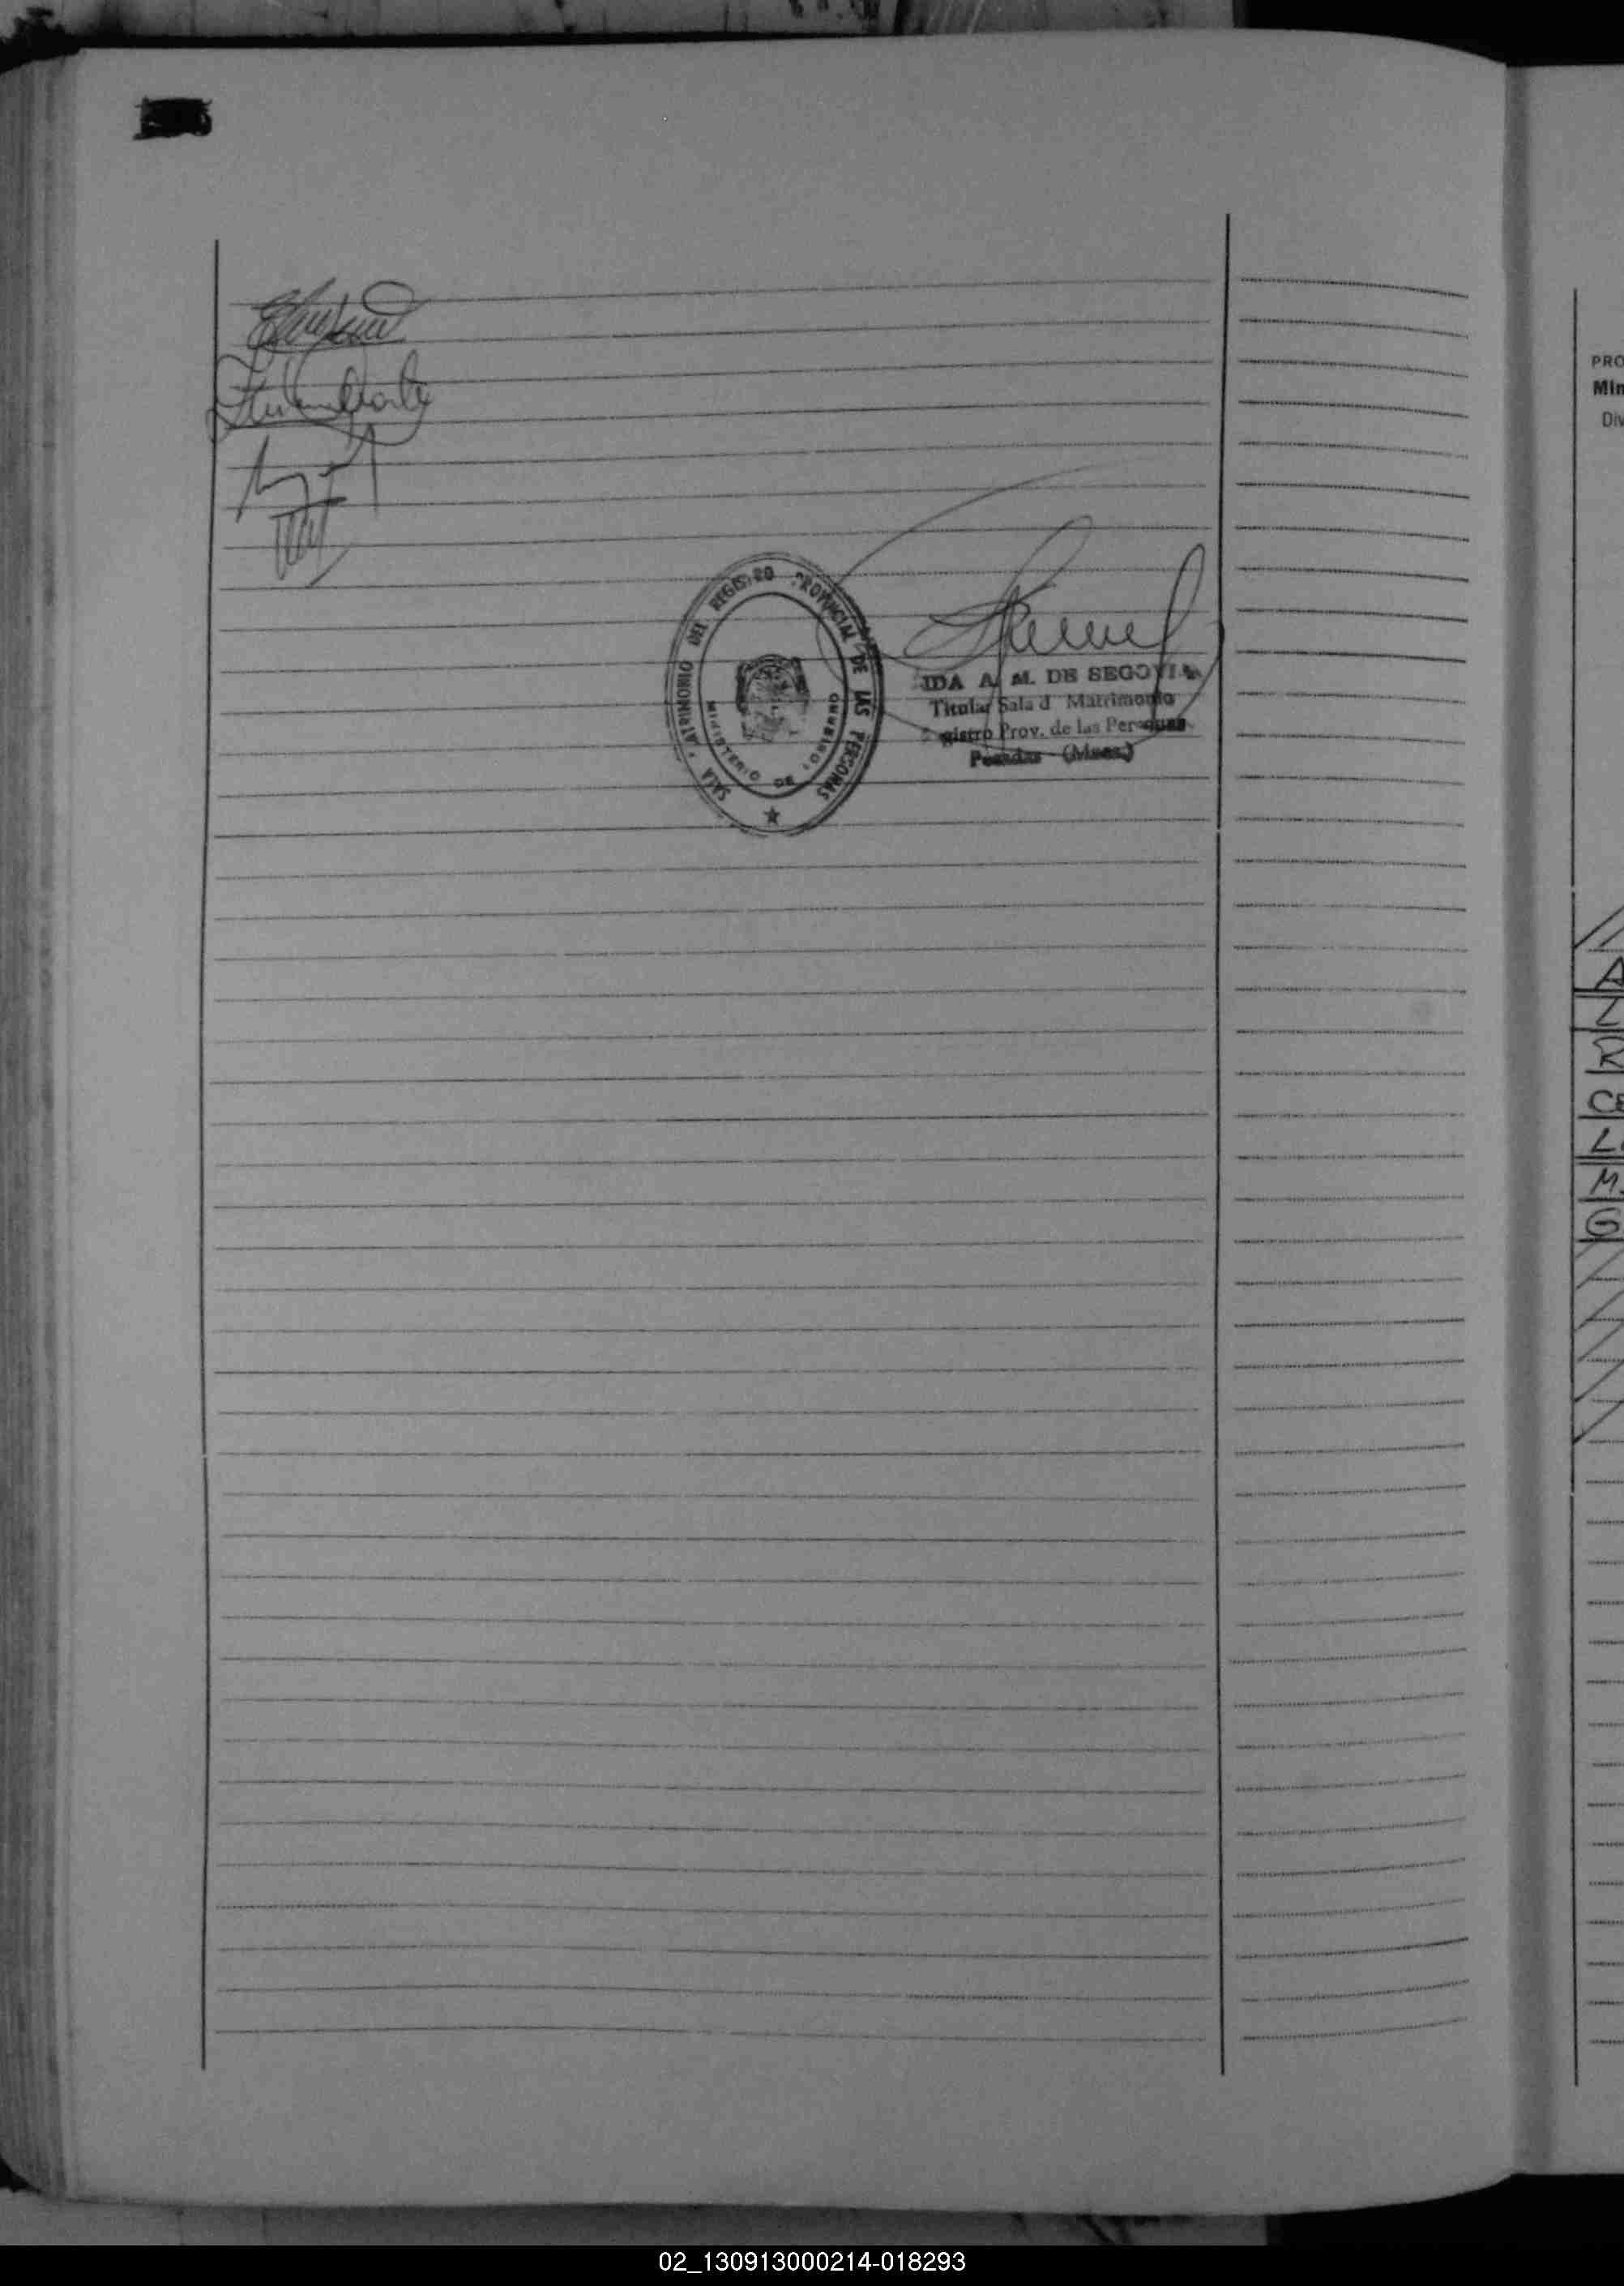 SALA MATRIMONIO DEL REGISTRO PROVINCIAL DE LAS PERSONAS
MINISTERIO DE GOBIERNO
IDA A. M. DE SEGOVIA
Titular Sala d Matrimonio
gistro Prov. de las Personas
Posadas - (Mnes.)
PRO
Min
Div
A
L
R
CE
L
M.
G
02_130913000214-018293